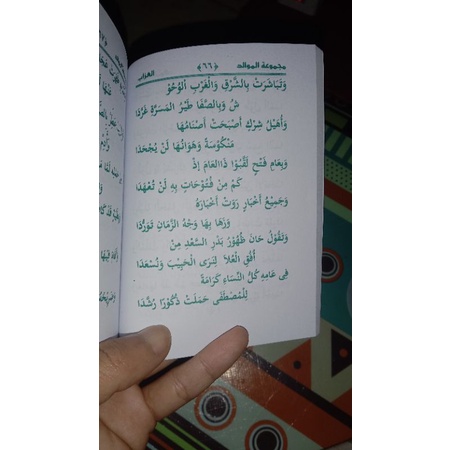 مجموعة الموالد ﴿٦٦﴾ العزب
وَتَبَاشَرَتْ بِالشَّرْقِ وَالْغَرْبِ الْوُحُوْ
شُ وَبِالصَّفَا طَيْرُ الْمَسَرَّةِ غَرَّدَا
وَأُهَيْلُ شِرْكٍ أَصْبَحَتْ أَصْنَامُهَا
مَنْكُوْسَةً وَهَوَانُهَا لَنْ يُجْحَدَا
وَبِعَامِ فَتْحٍ لَقَّبُوْا ذَاالْعَامَ إِذْ
كَمْ مِنْ فُتُوْحَاتٍ بِهِ لَنْ تُعْهَدَا
وَجَمِيْعُ أَحْبَارٍ رَوَتْ أَخْبَارَهُ
وَزَهَا بِهَا وَجْهُ الزَّمَانِ تَوَرُّدَا
وَتَقُوْلُ حَانَ ظُهُوْرُ بَدْرِ السَّعْدِ مِنْ
أُفُقِ الْعُلَا لِنَرَى الْحَبِيْبَ وَنُسْعَدَا
فِى عَامِهِ كُلُّ النِّسَاءِ كَرَامَةً
لِلْمُصْطَفَى حَمَلَتْ ذُكُوْرًا رُشَّدَا